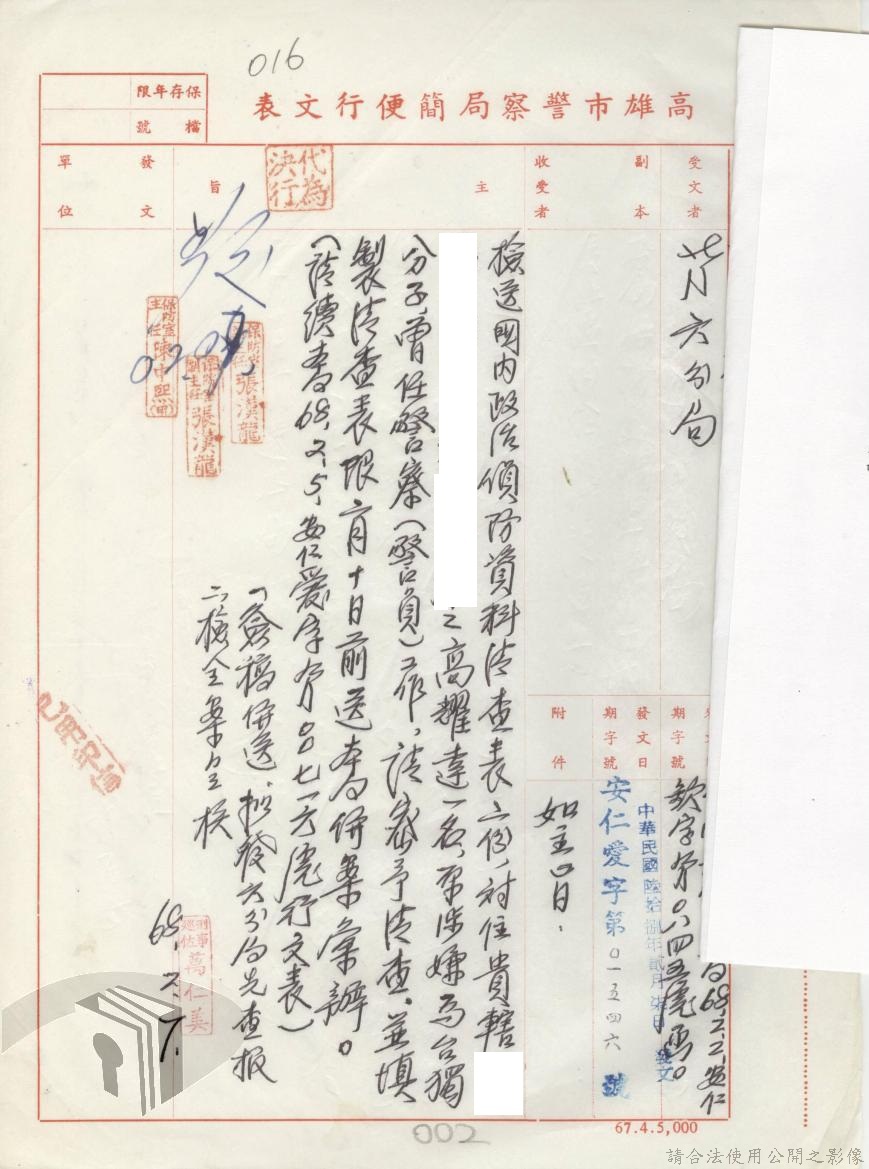 016
高雄市警察局簡便行文表
保存年限
檔號
受文者
副本
收受者
主旨
發文
單位
代為
決行
第六分局
68.2.2.安仁
敦字第〇八四五號函。
期字號
發文日
期字號
中華民國陸拾捌年貳月柒日發文
安仁愛字第〇一五四六號
附件
如主旨。
檢送國內政治偵防資料清查表二份,對住貴轄
之高耀達一名,原涉嫌為台獨
分子,曾任警察(警員)工作,請惠予清查,並填
製清查表限二月十日前送本局併案彙辦。
(請續本局68.2.5.安仁愛字第〇〇七一六號行文表)
一、發稿併送,拟發六分局先查報
二、檢全案
保防室
主任
陳中熙(甲)
0209
保防室
副主任
張漢龍
張漢龍
已用印信
刑事
巡佐
萬仁美
68.2.7.
67.4.5,000
002
請合法使用公開之影像